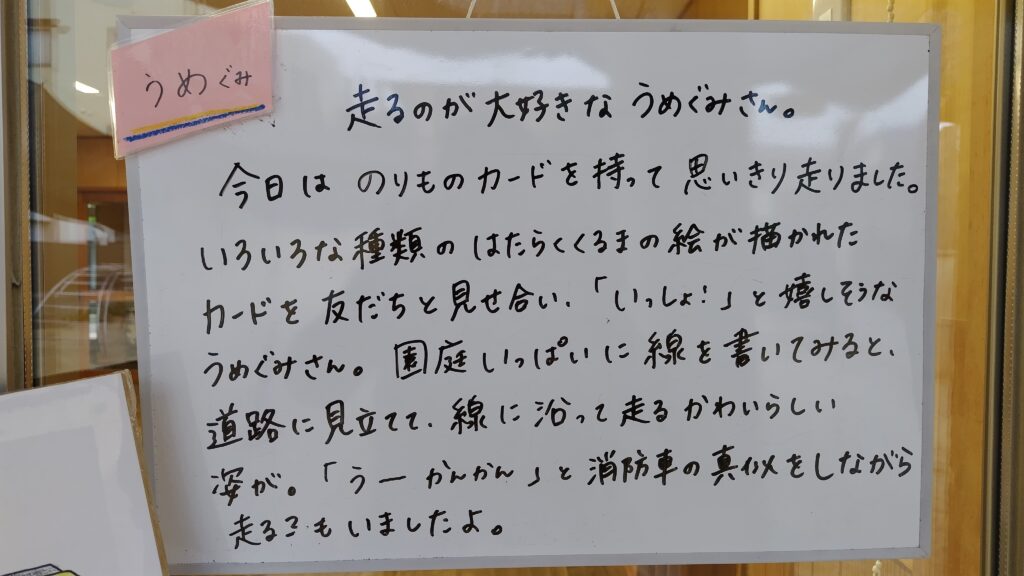 うめぐみ
走るのが大好きな うめぐみさん。
今日は のりものカードを持って 思いきり走りました。
いろいろな種類の はたらくくるまの絵が描かれた
カードを 友だちと見せ合い、「いっしょ!」と嬉しそうな
うめぐみさん。園庭いっぱいに 線を書いてみると、
道路に見立てて、線に沿って走る かわいらしい
姿が。「うーかんかん」と消防車の真似をしながら
走る子もいましたよ。